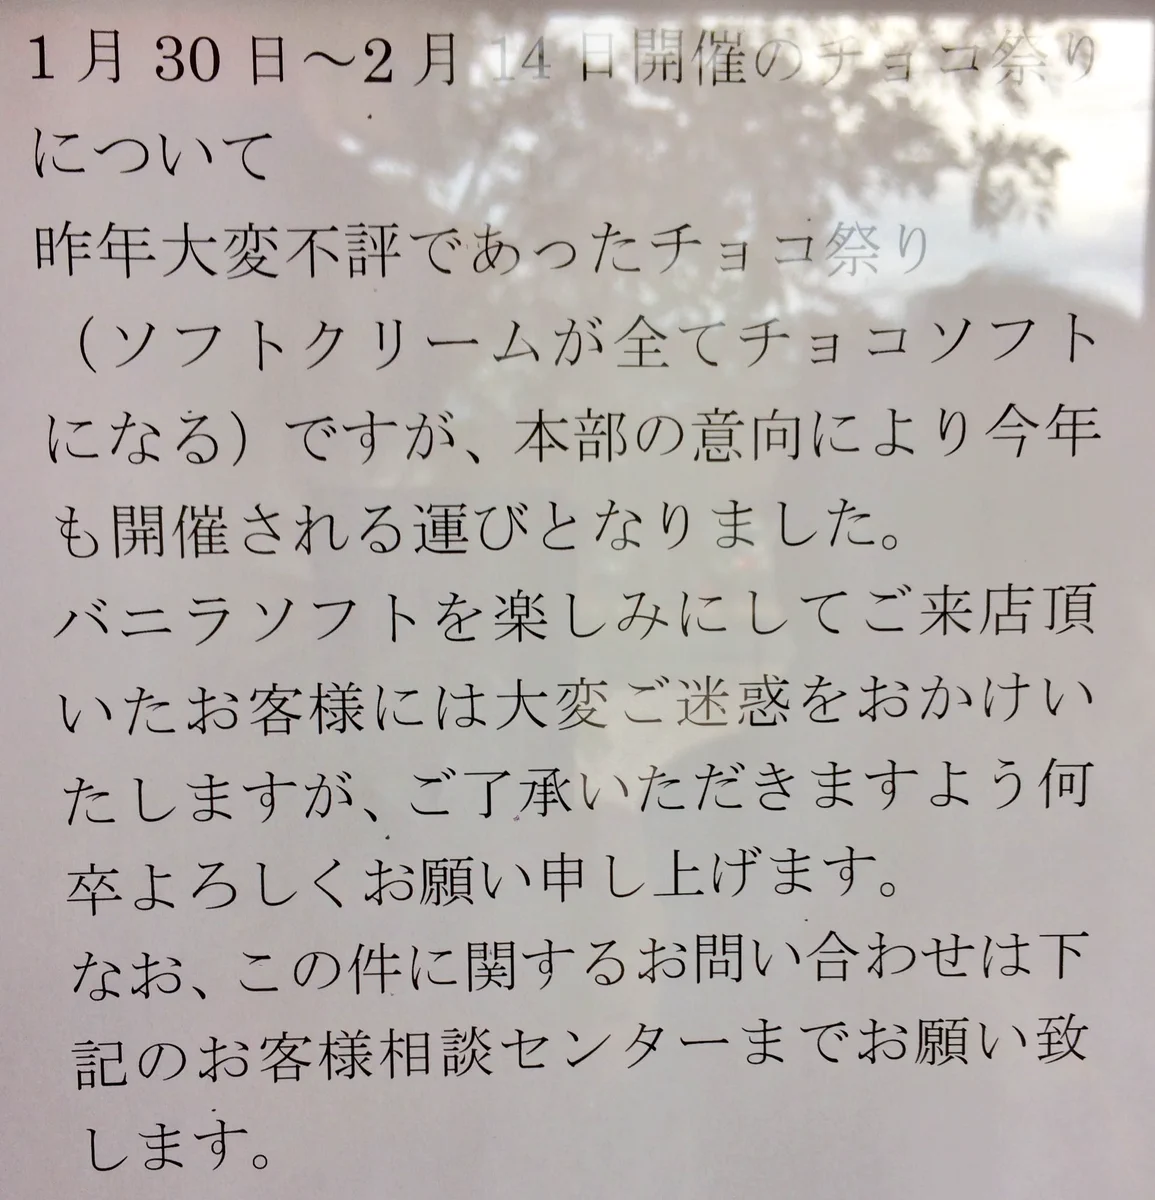 1月30日～2月14日開催のチョコ祭り
について
昨年大変不評であったチョコ祭り
（ソフトクリームが全てチョコソフト
になる）ですが、本部の意向により今年
も開催される運びとなりました。
バニラソフトを楽しみにしてご来店頂
いたお客様には大変ご迷惑をおかけい
たしますが、ご了承いただきますよう何
卒よろしくお願い申し上げます。
なお、この件に関するお問い合わせは下
記のお客様相談センターまでお願い致
します。